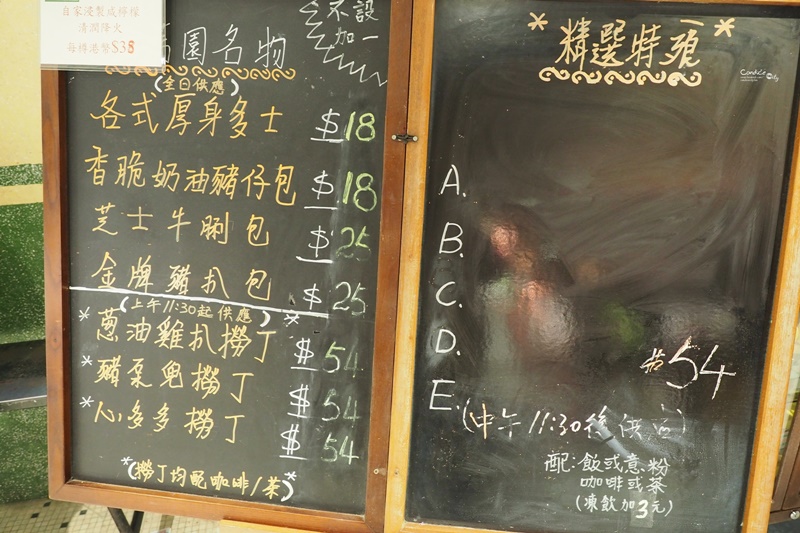 自家浸製咸檸檬
清潤降火
每樽港幣$38
園名物
不設
加一
(全日供應)
各式厚身多士 $18
香脆奶油豬仔包 $18
芝士牛脷包 $25
金牌豬扒包 $25
(上午11:30起供應)
*蔥油雞扒撈丁* $54
*豬柔兒撈丁 $54
*心多多撈丁 $54
*(撈丁均配咖啡/茶)*
*精選特飡*
A.
B.
C.
D.
$54
E.
(中午11:30後供應)
配:飯或意粉
咖啡或茶
(凍飲加3元)